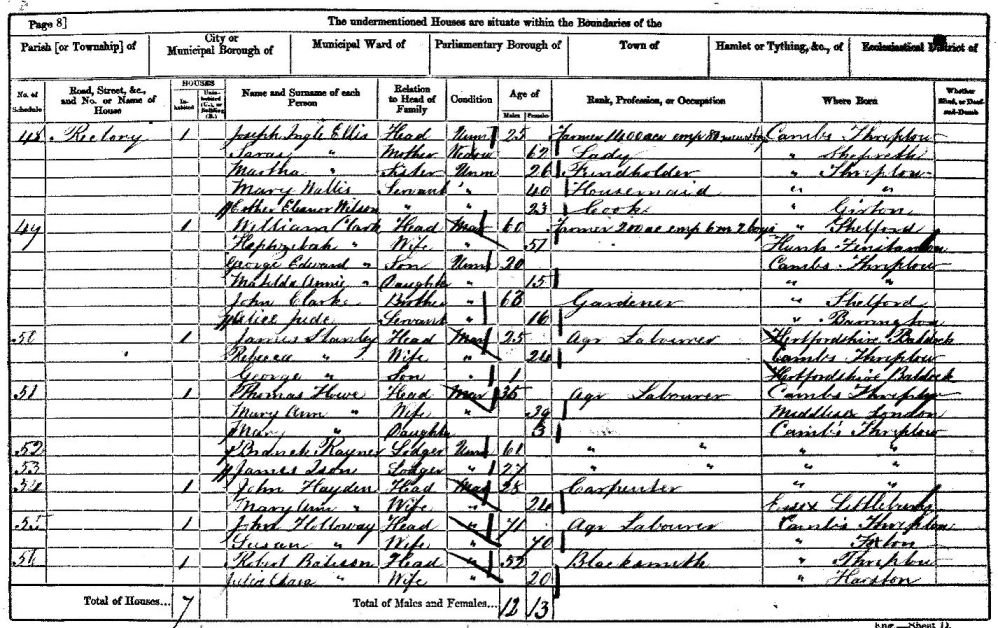 Page 8] The undermentioned Houses are situate within the Boundaries of the
Parish [or Township] of City or Municipal Borough of Municipal Ward of Parliamentary Borough of Town of Hamlet or Tything, &c., of Ecclesiastical District of
No. of Schedule Road, Street, &c., and No. or Name of House HOUSES Inhabited Uninhabited (U.), or Building (B.) Name and Surname of each Person Relation to Head of Family Condition Age of Males Females Rank, Profession, or Occupation Where Born Whether Blind, or Deaf-and-Dumb
48 Rectory 1 Joseph Ingle Ellis Head Unm 25 Farmer 1400 ace emp 80 men Cambs Threplow
Sarah " Mother Widow 62 Lady " Shepreth
Martha " Sister Unm 26 Fundholder " Threplow
Mary Wallis Servant " 40 Housemaid " "
Esther Eleanor Wilson " " 23 Cook " Girton
49 1 William Clark Head Mar 60 Farmer 200 ac emp 6 m 2 boys " Shelford
Hephzebah " Wife " 51 Hunts Finstanton
George Edward " Son Unm 20 Cambs Threplow
Matilda Annie " Daughter " 15 " "
John Clarke Brother " 63 Gardener " Shelford
Alice Jude Servant " 16 " Barrington
50 1 James Stanley Head Mar 25 Agr Labourer Hertfordshire Baldock
Rebecca " Wife " 24 Cambs Threplow
George " Son " 1 Hertfordshire Baldock
51 1 Thomas Howe Head Mar 35 Agr Labourer Cambs Threplow
Mary Ann " Wife " 39 Middlesex London
Mary " Daughter 3 Cambs Threplow
52 Rayner Lodger Unm 61 " " " "
53 James Ison Lodger " 27 " " " "
54 1 John Hayden Head Mar 28 Carpenter " "
Mary Ann " Wife " 24 Essex Littlebury
55 1 John Holloway Head " 71 Agr Labourer Cambs Threplow
Susan " Wife " 70 " Foxton
56 1 Robert Bateson Head " 52 Blacksmith " Threplow
Julia Clara " Wife " 20 " Harston
Total of Houses... 7 Total of Males and Females... 12 13
Eng.—Sheet D.